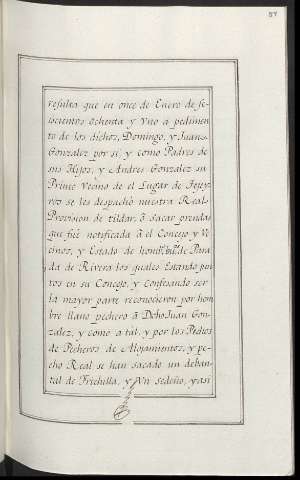 87
resulta que en once de Enero de se-
iscientos ochenta y Vno a pedimen
to de los dichos, Domingo, y Juan
Gonzalez por si, y como Padres de
sus Hijos, y Andres Gonzalez su
Primo Vecino de el Lugar de Tejey-
ros se les despachò nuestra Real
Provision de tildar, ò sacar prendas
que fuè notificada à el Concejo y Ve
cinos, y Estado de homs. bs. de Para
da de Rivera los quales Estando jun
tos en su Concejo, y Confesando ser
la mayor parte reconocieron por hom
bre llano pechero à Dcho Juan Gon
zalez, y como a tàl, y por los Pechos
de Pecheros de Alojamientos, y pe-
cho Real se han sacado un deban-
tal de Frichilla, y Vn sedeño, y asi